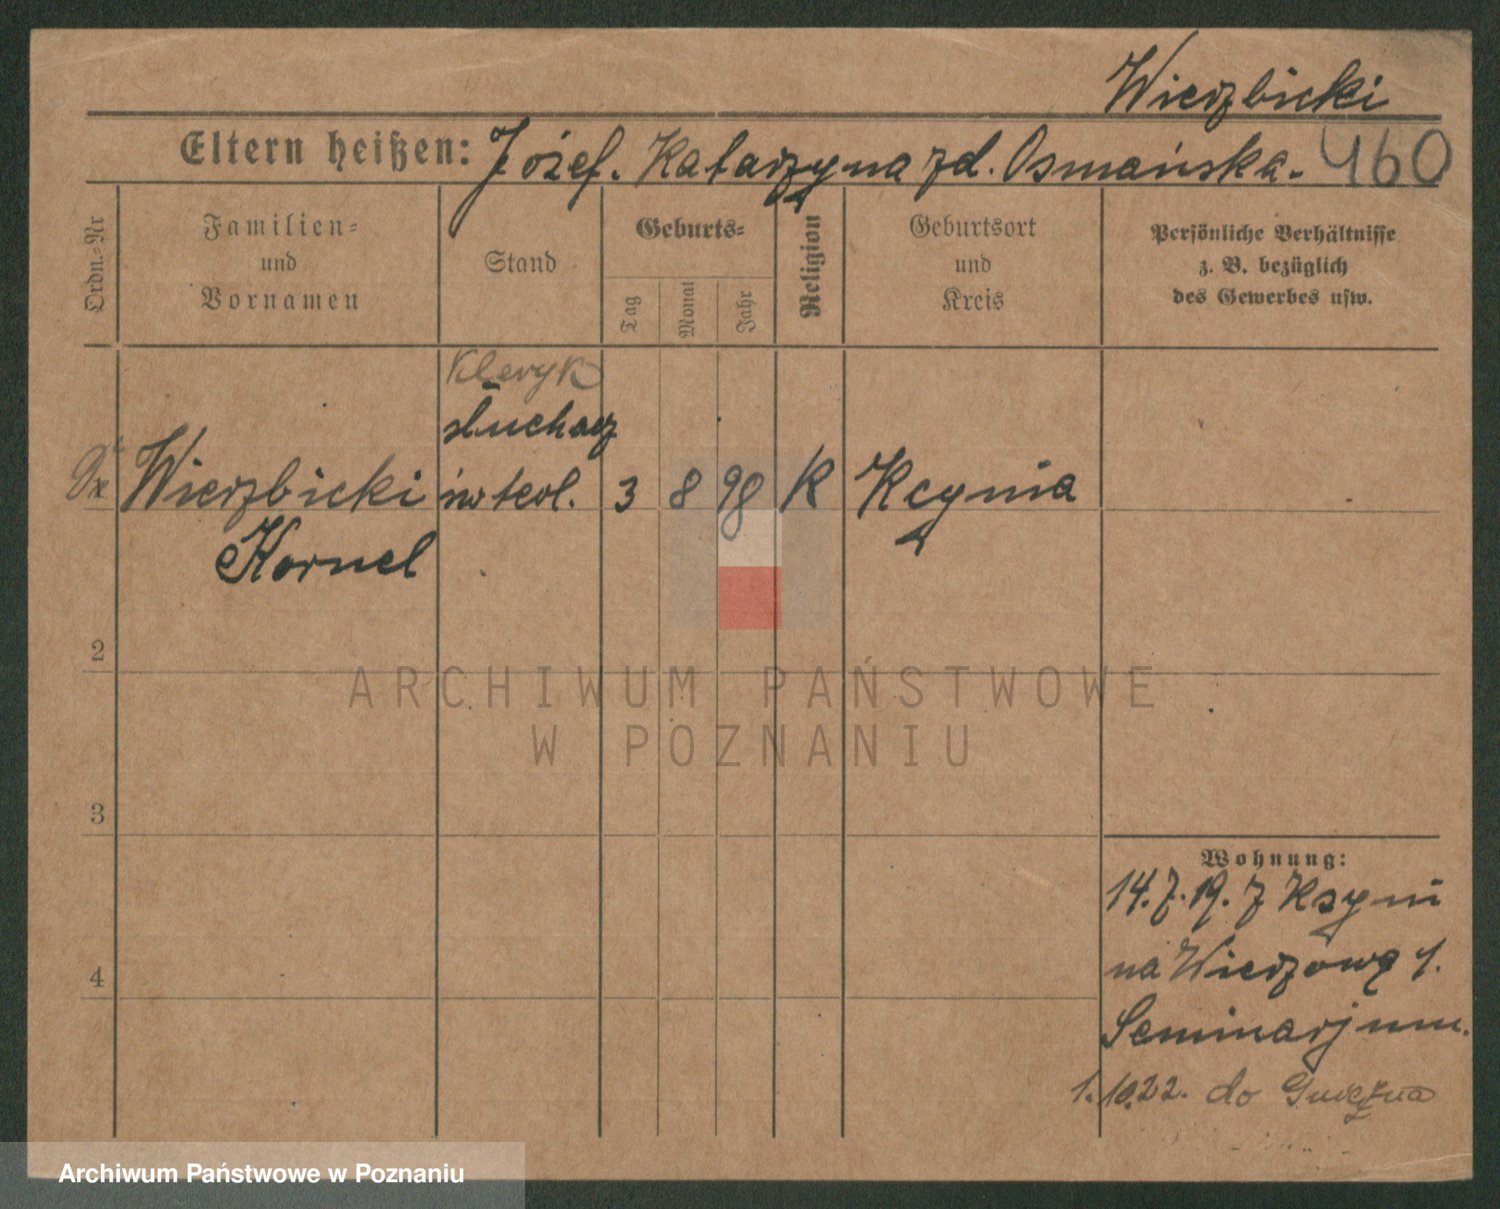 Wierzbicki
Eltern heißen: Józef. Katarzyna zd. Osmańska. 460
Ordn.=Nr
Familien=
und
Vornamen
Stand
Geburts=
Tag
Monat
Jahr
Religion
Geburtsort
und
Kreis
Persönliche Verhältnisse
z. B. bezüglich
des Gewerbes usw.
Kleryk
słuchacz
Wierzbicki św teol. 3 8 98 R Kcynia
Kornel
2
ARCHIWUM PAŃSTWOWE
W POZNANIU
3
Wohnung:
14.7.19. z Kcyni
na Wieżową 1.
4
Seminarjum.
1.10.22. do Gniezna
Archiwum Państwowe w Poznaniu